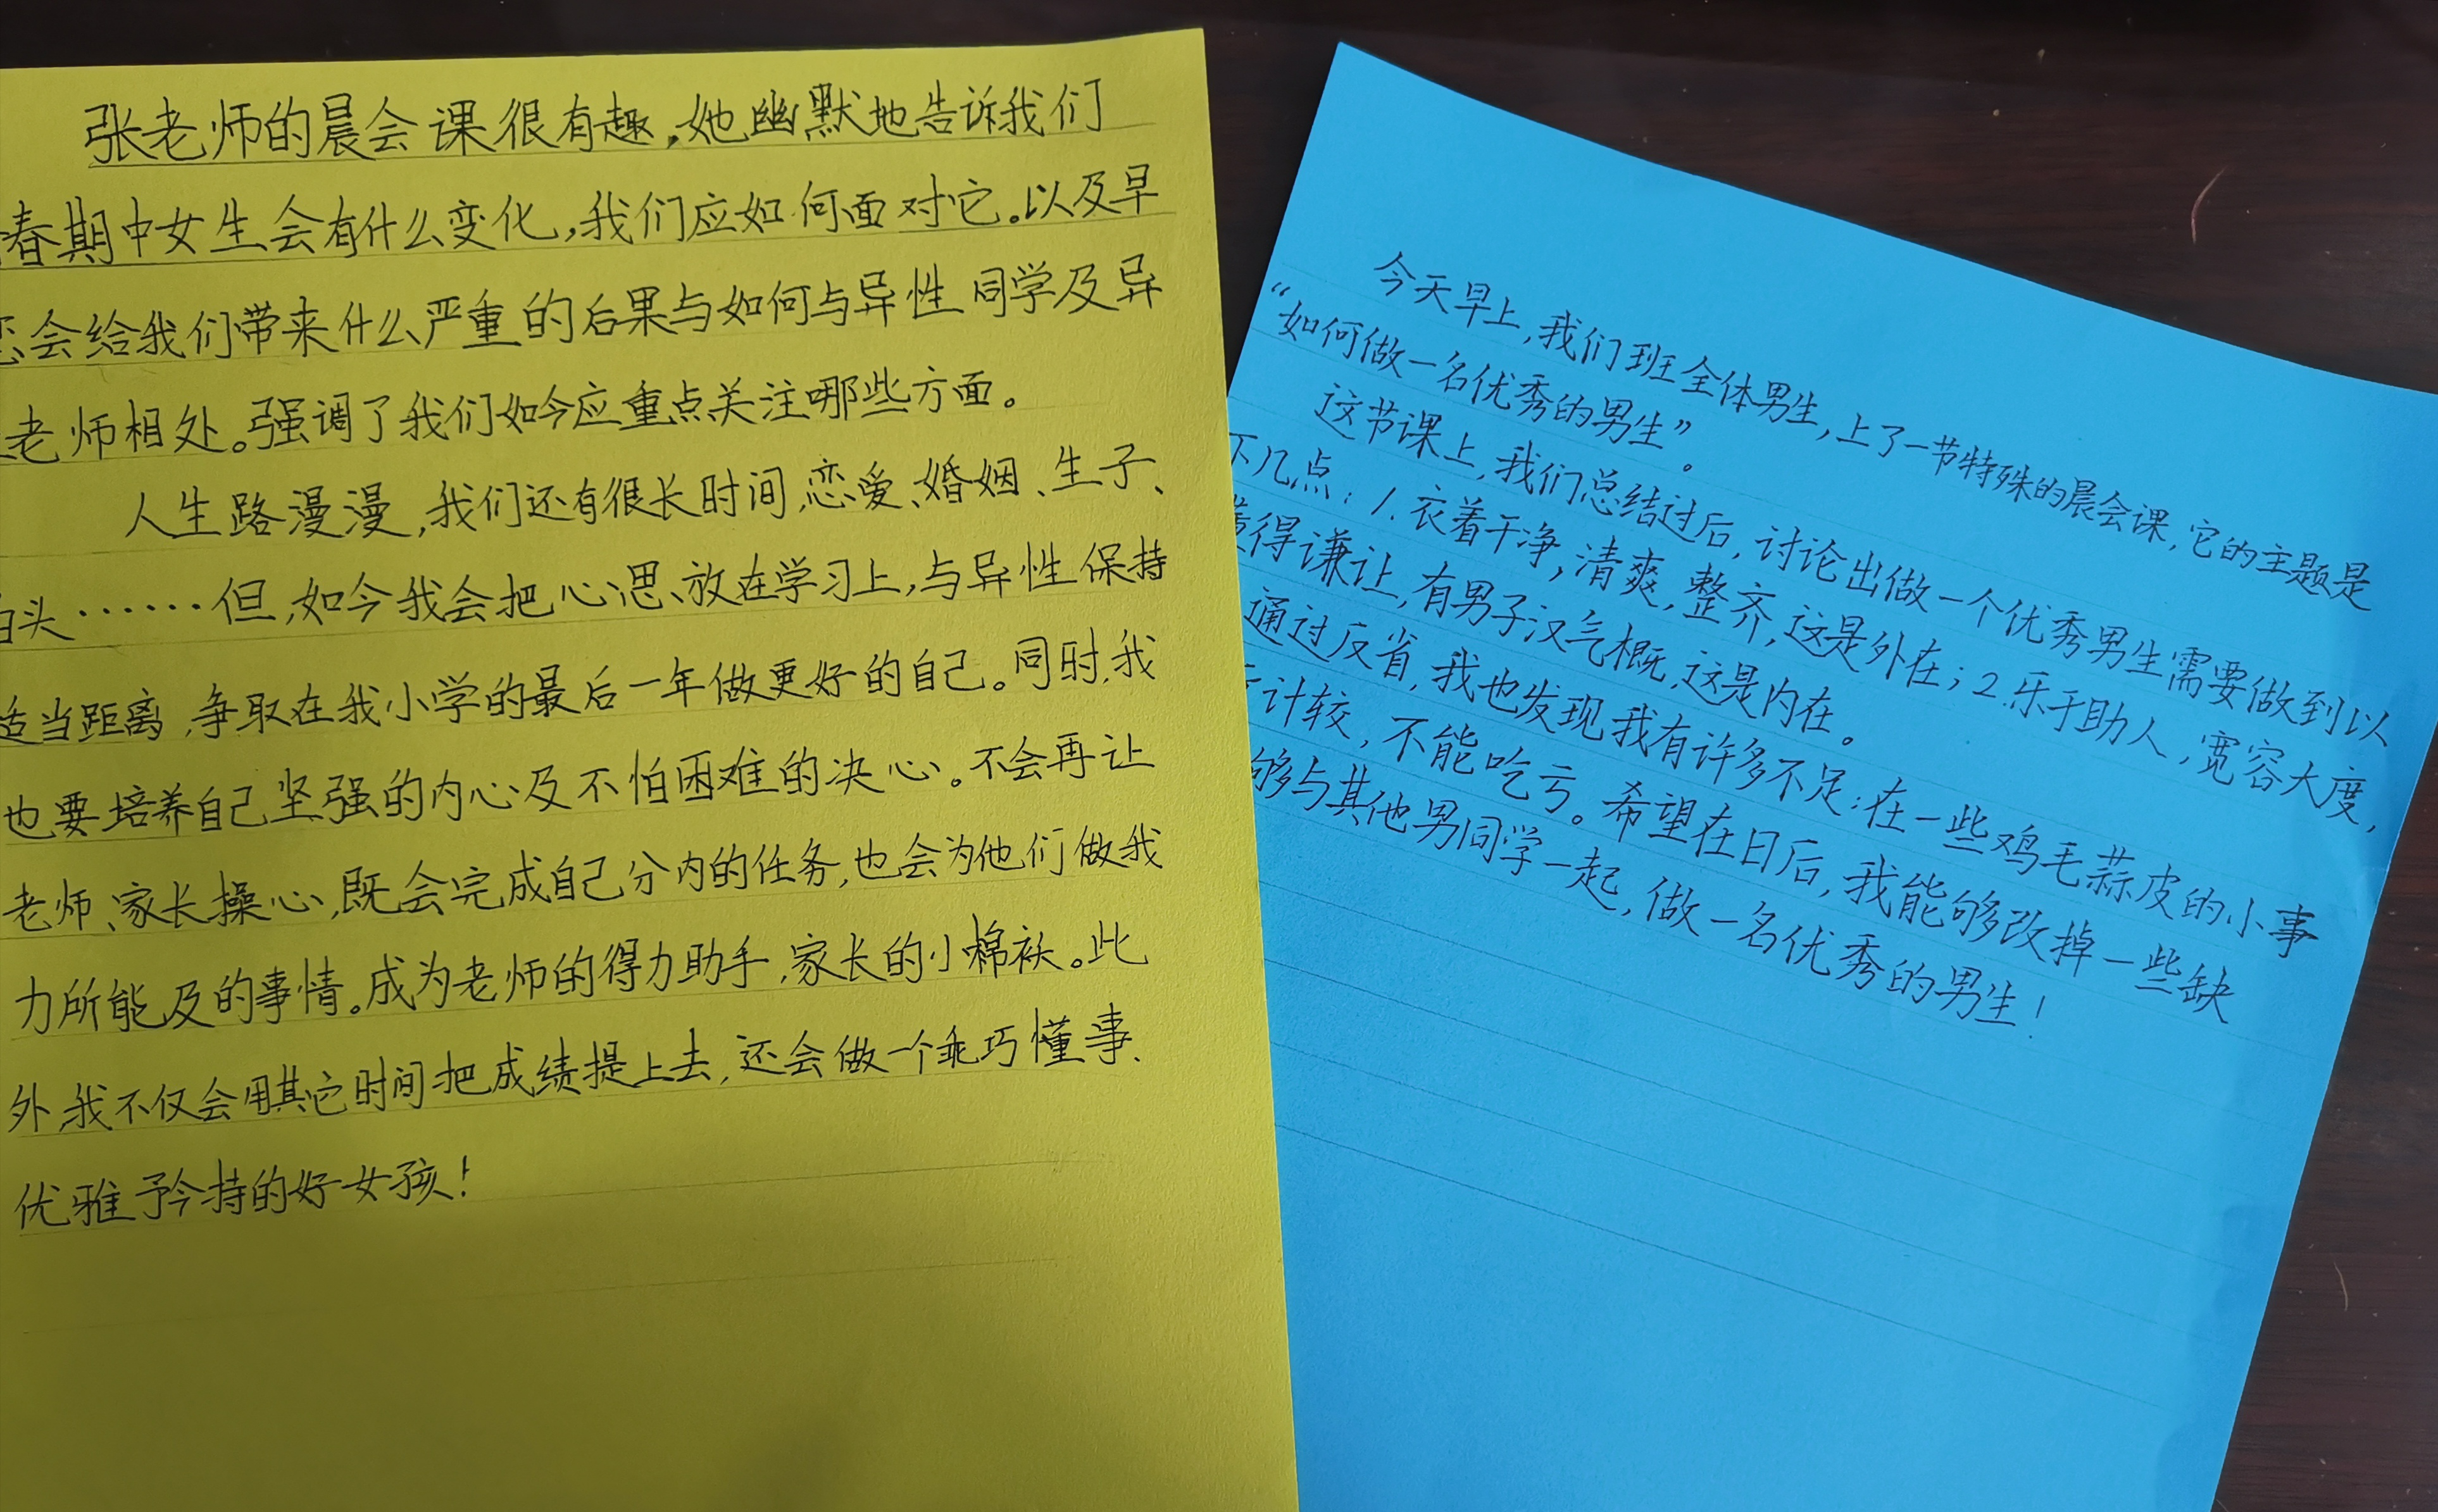 张老师的晨会课很有趣,她幽默地告诉我们
春期中女生会有什么变化,我们应如何面对它。以及早
会给我们带来什么严重的后果与如何与异性同学及异
老师相处。强调了我们如今应重点关注哪些方面。
人生路漫漫,我们还有很长时间,恋爱、婚姻、生子、
头……但,如今我会把心思放在学习上,与异性保持
适当距离,争取在我小学的最后一年做更好的自己。同时,我
也要培养自己坚强的内心及不怕困难的决心。不会再让
老师、家长操心,既会完成自己分内的任务,也会为他们做我
力所能及的事情。成为老师的得力助手,家长的小棉袄。此
外,我不仅会用其它时间把成绩提上去,还会做一个乖巧懂事、
优雅矜持的好女孩!
今天早上,我们班全体男生,上了一节特殊的晨会课,它的主题是
“如何做一名优秀的男生”。
这节课上,我们总结过后,讨论出做一个优秀男生需要做到以
下几点:1.衣着干净,清爽,整齐,这是外在;2.乐于助人,宽容大度,
懂得谦让,有男子汉气概,这是内在。
通过反省,我也发现我有许多不足:在一些鸡毛蒜皮的小事
计较,不能吃亏。希望在日后,我能够改掉一些缺
够与其他男同学一起,做一名优秀的男生!